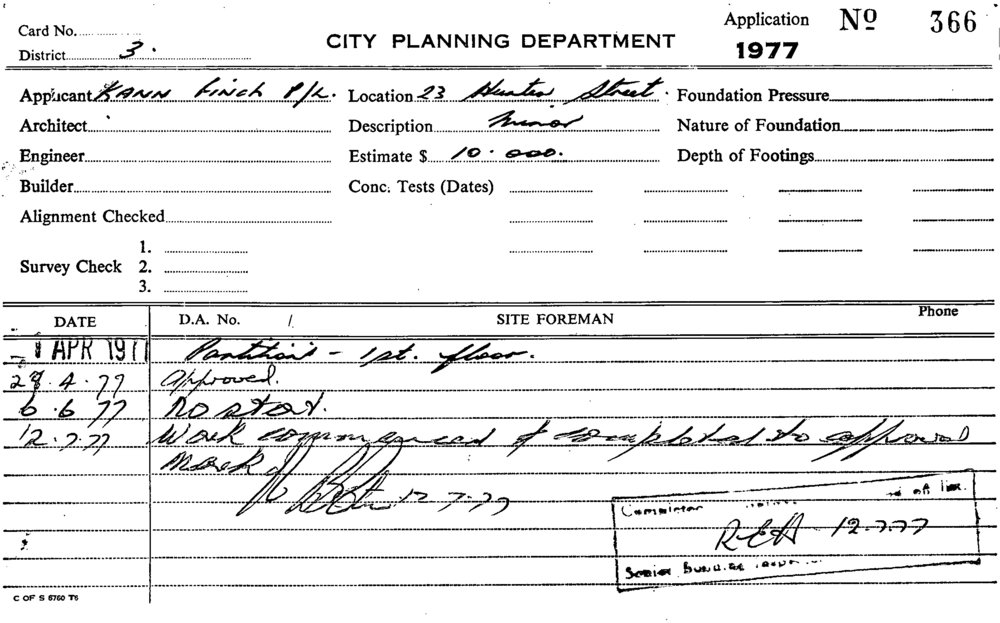 Card No. CITY PLANNING DEPARTMENT Application Nº 366
District 3. 1977
Applicant KANN Finch P/L. Location 23 Hunter Street. Foundation Pressure
Architect Description Minor Nature of Foundation
Engineer Estimate $ 10.000. Depth of Footings
Builder Conc. Tests (Dates)
Alignment Checked
1.
Survey Check 2.
3.
DATE D.A. No. / SITE FOREMAN Phone
1 APR 1977 Partitions - 1st. floor.
28.4.77 Approved.
6.6.77 No start.
12.7.77 Work commenced & completed to approval
12-7-77
R.E.H. 12.7.77
Senior Building
C OF S 6760 T6